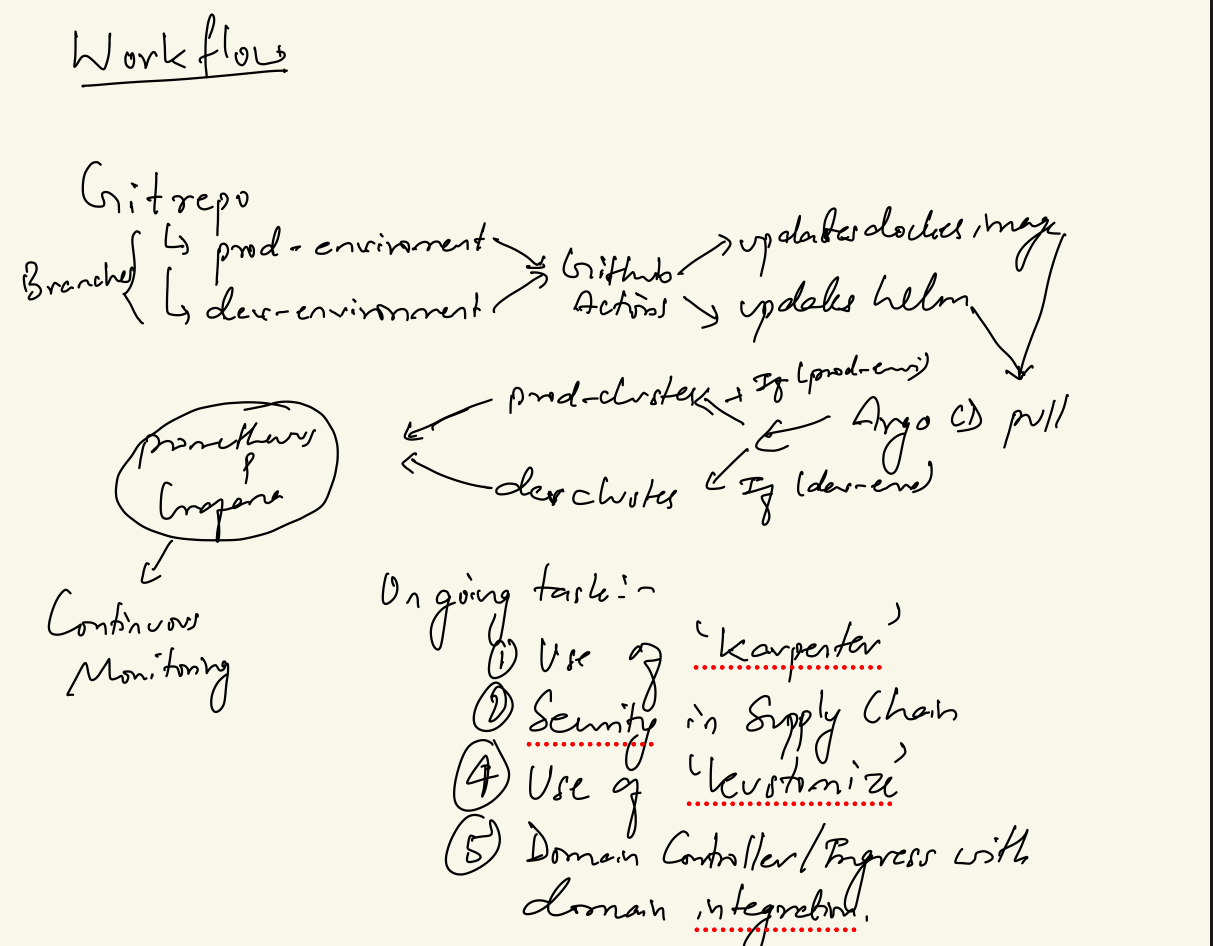 Workflow
Gitrepo
Branches
↳ prod-environment
↳ dev-environment
Github
Actions
updates docker image
updates helm
Argo CD pull
If (prod-env)
prod-cluster
If (dev-env)
dev cluster
prometheus
&
Grafana
Continuous
Monitoring
Ongoing task:-
① Use of 'Karpenter'
② Security in Supply Chain
④ Use of 'kustomize'
⑤ Domain Controller/Ingress with
domain integration.